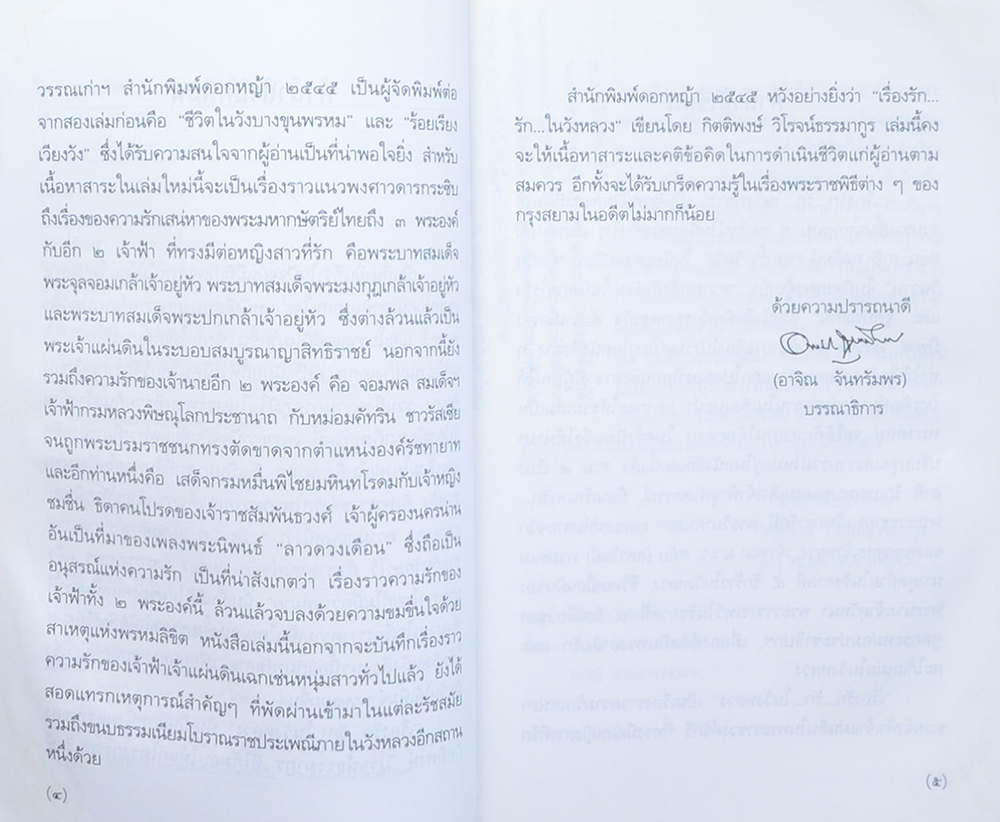 วรรณเก่าฯ สำนักพิมพ์ดอกหญ้า ๒๕๔๕ เป็นผู้จัดพิมพ์ต่อ
จากสองเล่มก่อนคือ "ชีวิตในวังบางขุนพรหม" และ "ร้อยเรียง
เวียงวัง" ซึ่งได้รับความสนใจจากผู้อ่านเป็นที่น่าพอใจยิ่ง สำหรับ
เนื้อหาสาระในเล่มใหม่นี้จะเป็นเรื่องราวแนวพงศาวดารกระซิบ
ถึงเรื่องของความรักเสน่หาของพระมหากษัตริย์ไทยถึง ๓ พระองค์
กับอีก ๒ เจ้าฟ้า ที่ทรงมีต่อหญิงสาวที่รัก คือพระบาทสมเด็จ
พระจุลจอมเกล้าเจ้าอยู่หัว พระบาทสมเด็จพระมงกุฎเกล้าเจ้าอยู่หัว
และพระบาทสมเด็จพระปกเกล้าเจ้าอยู่หัว ซึ่งต่างล้วนแล้วเป็น
พระเจ้าแผ่นดินในระบอบสมบูรณาญาสิทธิราชย์ นอกจากนี้ยัง
รวมถึงความรักของเจ้านายอีก ๒ พระองค์ คือ จอมพล สมเด็จฯ
เจ้าฟ้ากรมหลวงพิษณุโลกประชานาถ กับหม่อมคัทริน ชาวรัสเซีย
จนถูกพระบรมราชชนกทรงตัดขาดจากตำแหน่งองค์รัชทายาท
และอีกท่านหนึ่งคือ เสด็จกรมหมื่นพิไชยมหินทโรดมกับเจ้าหญิง
ชมชื่น ธิดาคนโปรดของเจ้าราชสัมพันธวงศ์ เจ้าผู้ครองนครน่าน
อันเป็นที่มาของเพลงพระนิพนธ์ "ลาวดวงเดือน" ซึ่งถือเป็น
อนุสรณ์แห่งความรัก เป็นที่น่าสังเกตว่า เรื่องราวความรักของ
เจ้าฟ้าทั้ง ๒ พระองค์นี้ ล้วนแล้วจบลงด้วยความขมขื่นใจด้วย
สาเหตุแห่งพรหมลิขิต หนังสือเล่มนี้นอกจากจะบันทึกเรื่องราว
ความรักของเจ้าฟ้าเจ้าแผ่นดินเฉกเช่นหนุ่มสาวทั่วไปแล้ว ยังได้
สอดแทรกเหตุการณ์สำคัญๆ ที่พัดผ่านเข้ามาในแต่ละรัชสมัย
รวมถึงขนบธรรมเนียมโบราณราชประเพณีภายในวังหลวงอีกสถาน
หนึ่งด้วย
(๔)
สำนักพิมพ์ดอกหญ้า ๒๕๔๕ หวังอย่างยิ่งว่า "เรื่องรัก...
รัก...ในวังหลวง" เขียนโดย กิตติพงษ์ วิโรจน์ธรรมากูร เล่มนี้คง
จะให้เนื้อหาสาระและคติข้อคิดในการดำเนินชีวิตแก่ผู้อ่านตาม
สมควร อีกทั้งจะได้รับเกร็ดความรู้ในเรื่องพระราชพิธีต่าง ๆ ของ
กรุงสยามในอดีตไม่มากก็น้อย
ด้วยความปรารถนาดี
(อาจิณ จันทรัมพร)
บรรณาธิการ
(๕)